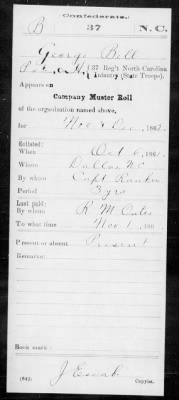 Confederate.
B 37 N.C.
George Bell
Co. H, 37 Reg't North Carolina
Infantry (State Troops).
Appears on
Company Muster Roll
of the organization named above,
for Nov & Dec, 1862.
Enlisted:
When Oct 6, 186
Where Dallas NC
By whom Capt Rankin
Period 3 yrs
Last paid:
By whom R. M. Oates
To what time Nov 1, 186
Present or absent Present
Remarks:
Book mark:
(642) Copyist.